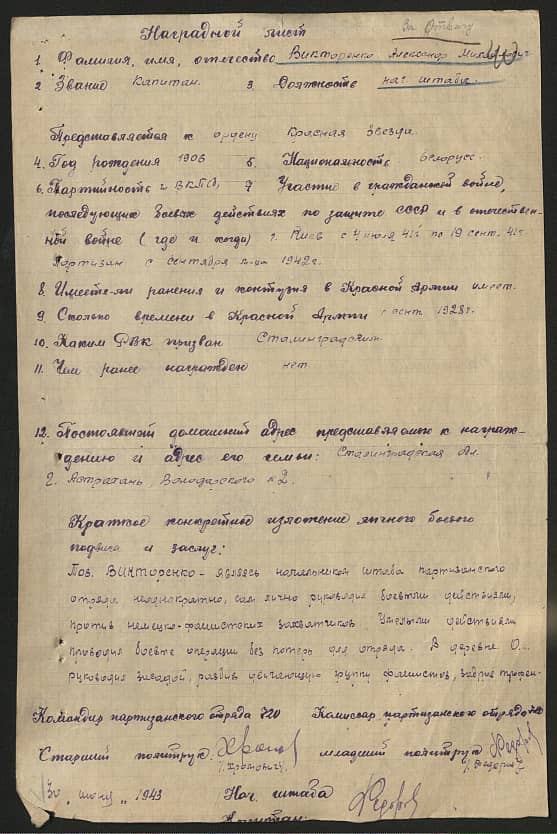 За Отвагу
Наградной лист
1. Фамилия, имя, отчество Викторенко Александр
2 Звание Капитан. 3. Должность нач штаба.
Представляется к ордену Красная Звезда.
4. Год рождения 1906 5. Национальность Белорус.
6. Партийность ВКП(б) 7 Участие в гражданской войне,
последующих боевых действиях по защите СССР и в отечествен-
ной войне (где и когда) г. Киев с 4 июля 41г по 19 сент. 41г
Партизан с сентября 1942г.
8. Имеет-ли ранения и контузия в Красной Армии имеет.
9. Сколько времени в Красной Армии с сент. 1928г.
10. Каким РВК призван Сталинградским.
11. Чем ранее награжден нет.
12. Постоянный домашний адрес представляемого к награж-
дению и адрес его семьи: Сталинградская
г. Астрахань, Володарского 2.
Краткое конкретное изложение личного боевого
подвига и заслуг:
Тов. Викторенко - являясь начальником штаба партизанского
отряда неоднократно, сам лично руководил боевыми действиями,
против немецко-фашистских захватчиков. Умелыми действиями
проводил боевые операции без потерь для отряда. В деревне О...
руководил засадой, разбив движающую группу фашистов, забрав трофеи-
Командир партизанского отряда 720 Комиссар партизанского отряда 720
Старший политрук младший политрук
30 июня 1943 Нач. штаба
Капитан: